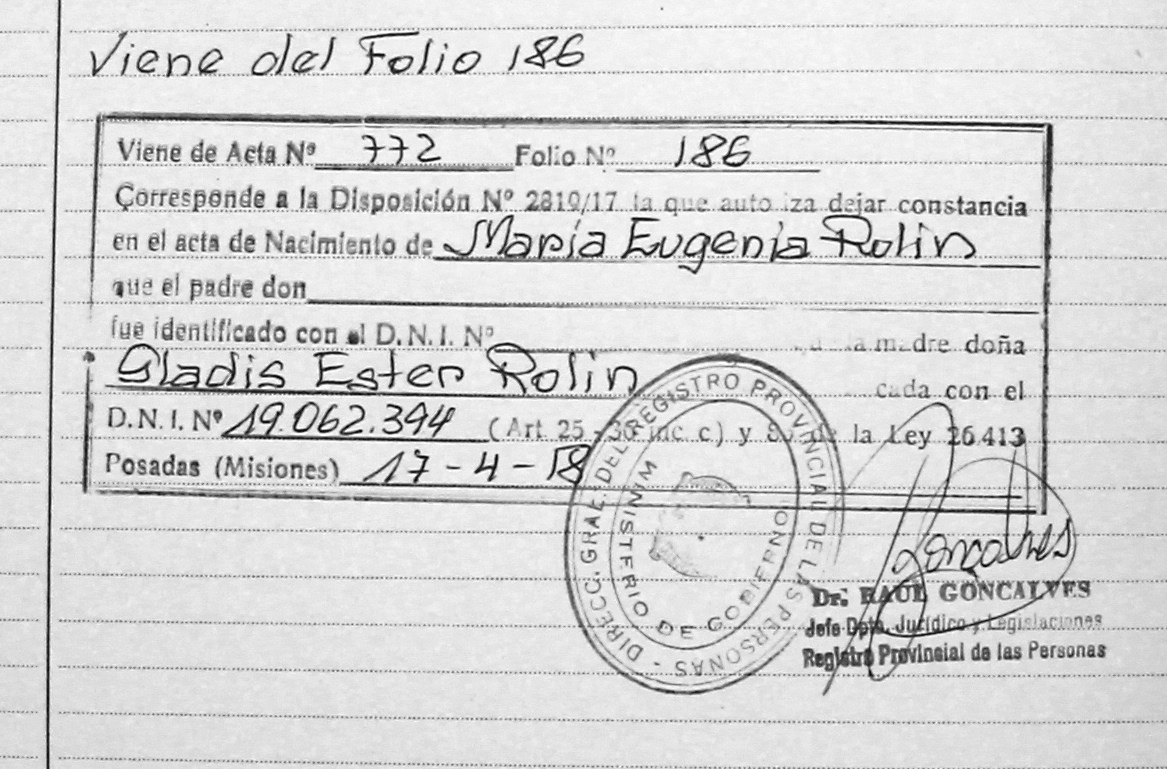 Viene del Folio 186
Viene de Acta Nº 772 Folio Nº 186
Corresponde a la Disposición Nº 2810/17 la que auto iza dejar constancia
en el acta de Nacimiento de Maria Eugenia Rolin
que el padre don
fue identificado con el D. N. I. Nº la madre doña
Gladis Ester Rolin cada con el
D. N. I. Nº 19.062.394 (Art. 25 - 36 inc. c) y 85 de la Ley 26.413
Posadas (Misiones) 17-4-18
DIRECC. GRAL. DEL REGISTRO PROVINCIAL DE LAS PERSONAS -
MINISTERIO DE GOBIERNO
Goncalves
Dr. RAUL GONCALVES
Jefe Dpto. Jurídico y Legislaciones
Registro Provincial de las Personas